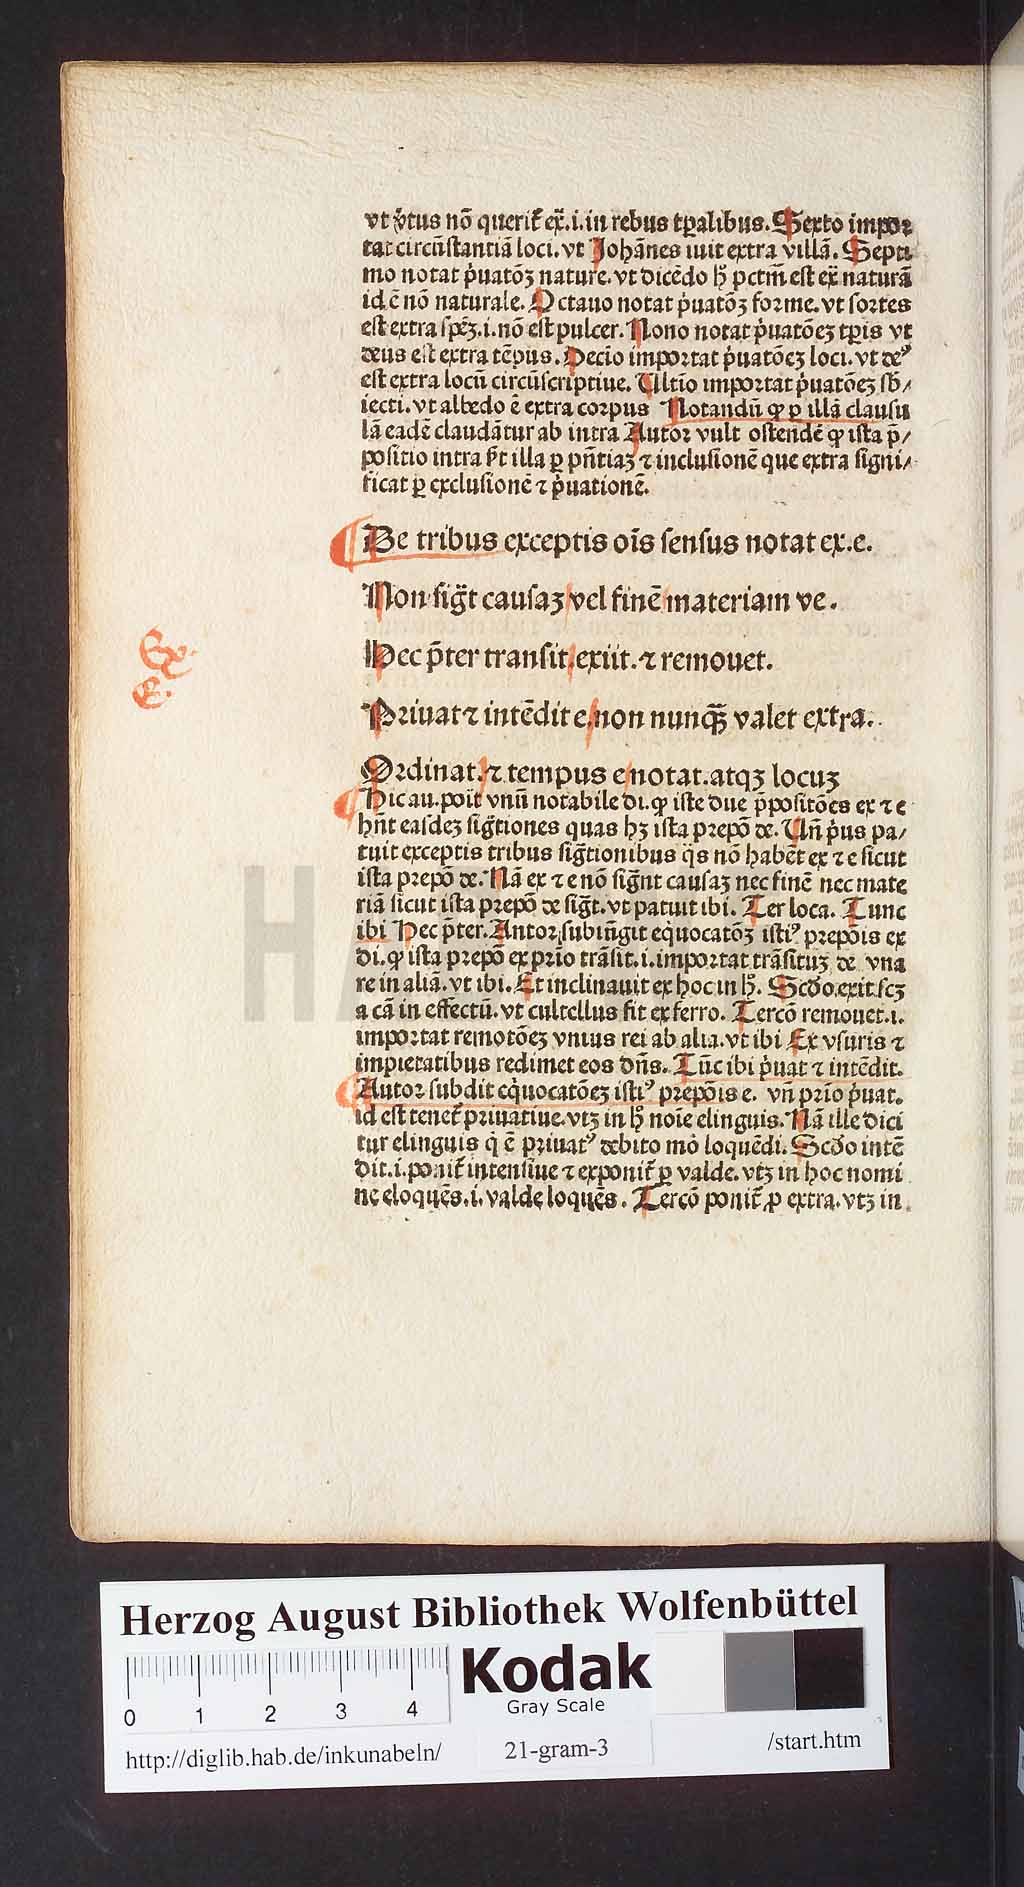 vt v̾tus nō querit᷑ ex̄.i.in rebus tꝑalibus. Sexto impor
tat circūſtantiā loci. vt Johānes iuit extra villā. Septi
mo notat p̄uatōꝫ nature. vt dicēdo hꝭ pctm̄ est ex̄ naturā
id ē nō naturale. Octauo notat p̄uatōꝫ forme. vt ſortes
eſt extra ſpēꝫ.i. nō eſt pulcer. Nono notat p̄uatōeꝫ tꝑis vt
deus eſt extra tēpus. Decio importat p̄uatōeꝫ loci. vt deꝰ
eſt extra locū circūſcriptiue. Ultīo importat p̄uatōeꝫ ſb̄/
iecti. vt albedo ē extra corpus Notandū ꝙ ꝑ illā clauſu
lā eadē claudātur ab intra Autor vult oſtendē ꝙ iſta p̄/
poſitio intra fit illa ꝑ pn̄tiaꝫ ⁊ incluſionē que extra ſigni/
ficat ꝑ excluſionē ⁊ p̄uationē.
De tribus exceptis oīs ſenſus notat ex.e.
Non ſigt̄ cauſaꝫ vel finē materiam ve.
Hec p̄ter tranſit. exiit. ⁊ remouet.
Priuat ⁊ intēdit e. non nunqꝫ̄ valet extra.
Ordinat. ⁊ tempus e notat. atqꝫ locuꝫ
Hic au. poit vnū notabile di. ꝙ iſte due p̄poſitōes ex ⁊ e
hn̄t eaſdeꝫ ſigt̄iones quas hꝫ iſta prepō de. Un̄ p̄us pa/
tuit exceptis tribus ſigt̄ionibus q̄s nō habēt ex ⁊ e ſicut
iſta prepō de. Nā ex ⁊ e nō ſign̄t cauſaꝫ nec finē nec mate
riā ſicut iſta prepō de ſigt̄. vt patuit ibi. Ter loca. Tunc
ibi Hec p̄ter. Autor ſubiūgit equocatōꝫ iſtiꝰ prepōis ex
di. ꝙ iſta prepō ex prīo trāſit.i. importat trāſituꝫ de vna
re in aliā. vt ibi. Et inclinauit ex hoc in hꝭ. Scd̄o.exit ſcꝫ
a cā in effectū. vt cultellus fit ex ferro. Tercō remouet.i.
importat remotōeꝫ vnius rei ab alia. vt ibi Ex vſuris ⁊
impietatibus redimet eos dn̄s. Tūc ibi p̄uat ⁊ intēdit.
Autor ſubdit eq̄uocatōeꝫ iſtiꝰ prepōis e. vn̄ prīo p̄uat.
id eſt tenet᷑ priuatiue. vtꝫ in hꝭ noīe elinguis. Nā ille dici
tur elinguis q̄ ē priuatꝰ debito mō loquēdi. Scd̄o intē
dit.i. ponit᷑ intenſiue ⁊ exponit᷑ ꝑ valde. vtꝫ in hoc nomi
ne eloquēs.i. valde loquēs. Tercō ponit᷑ ꝓ extra. vtꝫ in
Ex.
E.
Herzog August Bibliothek Wolfenbüttel
0 1 2 3 4
Kodak
Gray Scale
http://diglib.hab.de/inkunabeln/ 21-gram-3 /start.htm